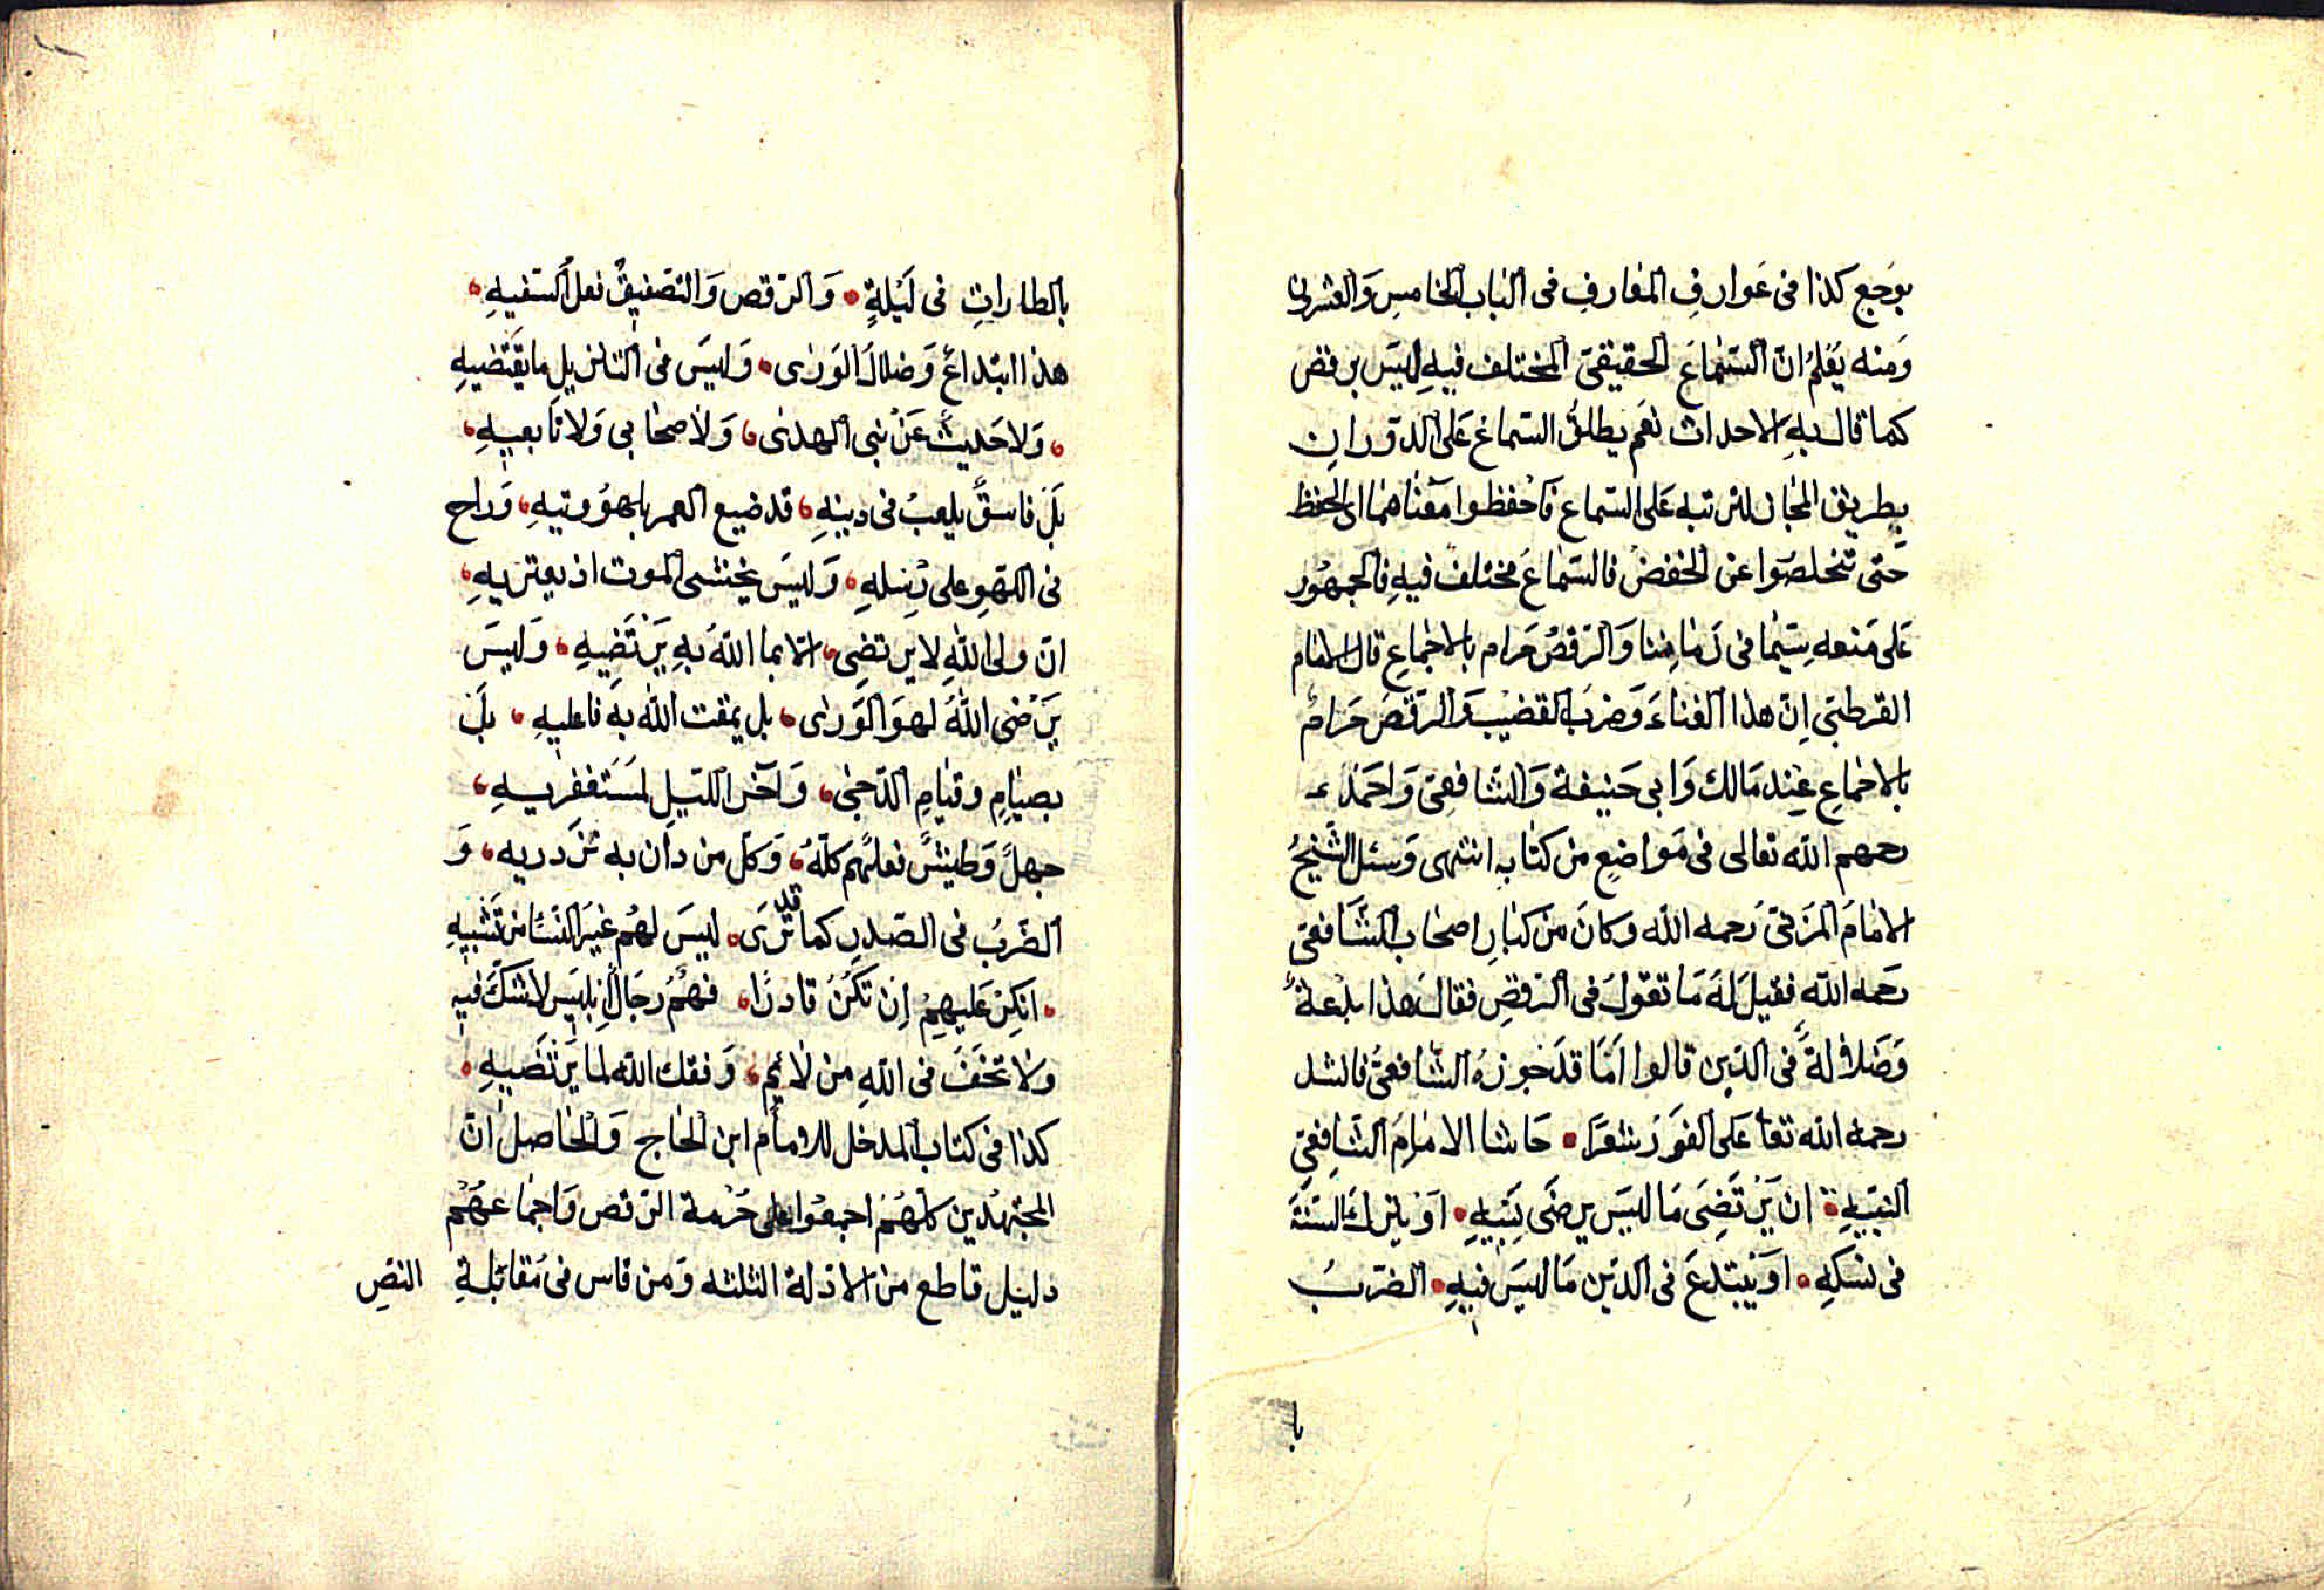 بوجع كذا فى عَوارفِ المعَارفِ فى البَاب الخامسِ وَالعشرين
وَمنه يُعْلمُ انّ السّمَاعَ الحقيقىّ المختلف فيهِ ليسَ برقص
كما قال بهِ الاحداث نعَم يطلقُ السّماع عَلى الدّوران
بطريق المجَاز للترتبه عَلى السّماع فَاحْفظوا معْناهُمَا اى الحفظ
حَتى تتخلصُوا عن الخفض فالسّمَاعَ مختلفٌ فيهِ فالجمهُور
عَلى مَنعه سيّمَا فى زمَاننا وَالرّقصُ حَرام بالاجمَاعِ قال الامَام
القرطبىّ اِنّ هذا الغنَاءَ وَضربَ القضيْبَ وَالرّقصَ حَرامٌ
بالاجمَاعِ عِنْد مَالك وَابى حَنيفة وَالشّافعِىّ وَاحمَد
رحمهم الله تعَالى فى مَواضِعٍ من كتَابهِ انتهى وَسئل الشّيخُ
الامَامَ المزنىّ رَحمه الله وكانَ من كبَارِ اصحَاب الشّافعىّ
رَحمه الله فقيلَ لهُ مَا تقولُ فى الرّقصِ فقالَ هذا بدْعةٌ
وَضَلالةٌ فى الدّين قالوا امَا قدْ جوّزهُ الشّافعىّ فانشد
رحمه الله تعا عَلى الفوْر شعرًا حَاشا الامَامُ الشّافِعىّ
النّبيهِ ان يَرْتَضِىَ مَا ليسَ يرضَى نَبيهِ اوْ يتركَ السّنّةَ
فى نسكهِ اوْ يَبْتدعَ فى الدّين مَا ليسَ فيهِ الضّربُ
با
بالطاراتِ فى لَيْلةٍ وَالرّقص وَالتّصْفيقُ فعلُ السّفيهِ
هذا ابتداعٌ وَضلالُ الوَرٰى وَليسَ فى التنزيلِ مَا يَقْتَضيهِ
وَلا حَديثٌ عَنْ نبى الهدٰى وَلَا صحَابى وَلا تَابعيهِ
بَلْ فاسقٌ يلعبُ فى دينهِ قد ضيع العمر بلهوٌ وتيهِ وَراح
فى اللّهوِ على رِسلهِ وَليسَ يخشى الموت اذ يعتريهِ
انّ ولىّ اللهِ لا يرتضِى الّا بما اللهُ بهِ يَرْتَضِيهِ وَليسَ
يَرْضى اللهُ لهوَ الوَرٰى بل يمقت الله به فاعليهِ بلْ
بصيَامٍ وقيَامِ الدّجٰى وَآخر اللّيلِ لمُسْتَغفريهِ
جهلٌ وَطيشٌ فعلُهُم كلّهُ وَكلّ من دان به تزْدريه وَ
الضّربُ فى الصّدرِ كما قد ترَى ليسَ لهُم غيَر النّسَا من تَشْبيهِ
انكِرْ عَليهمُ اِنْ تكُنْ قادرًا فهُمُ رجَالُ ابْليسَ لا شَكّ فيه
وَلا تخَفْ فى اللهِ من لَائمٍ وَفقك الله لما يَرْتَضيهِ
كذا فى كتاب المدخل للامام ابن الحَاج وَالحَاصل انّ
المجتهدين كلّهُمْ اجمعُوا على حُرْمة الرّقص وَاجمَاعهُمْ
دليْل قاطع من الادّلة الثلثه وَمن قاس فى مُقابَلةِ النصّ